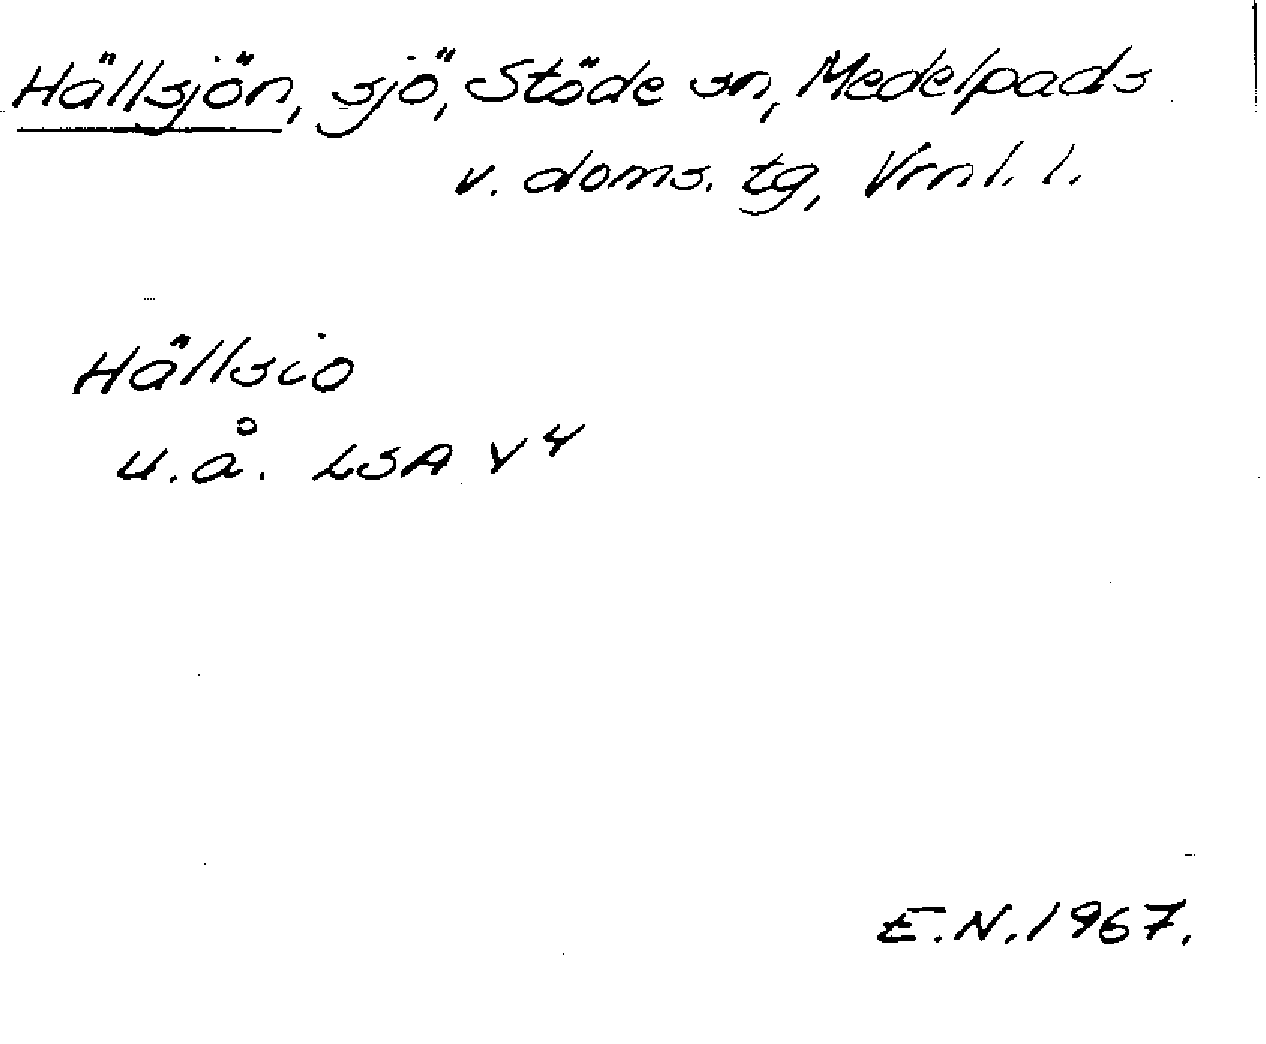 Hällsjön, sjö, Stöde sn, Medelpads
v. doms. tg, Vrnl. l.
Hällsio
u.å. LSA V4
E.N. 1967.